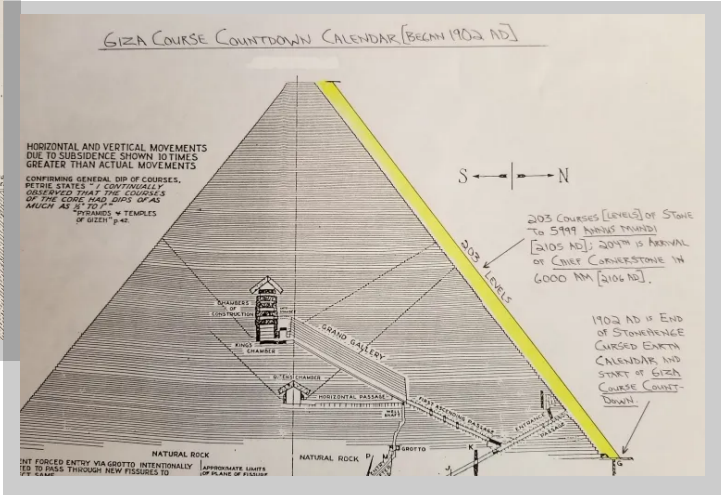 GIZA COURSE COUNTDOWN CALENDAR [BEGAN 1902 AD]
HORIZONTAL AND VERTICAL MOVEMENTS
DUE TO SUBSIDENCE SHOWN 10 TIMES
GREATER THAN ACTUAL MOVEMENTS
CONFIRMING GENERAL DIP OF COURSES,
PETRIE STATES "I CONTINUALLY
OBSERVED THAT THE COURSES
OF THE CORE HAD DIPS OF AS
MUCH AS ½° TO 1°"
"PYRAMIDS & TEMPLES
OF GIZEH" p.42.
S N
203 COURSES [LEVELS] OF STONE
TO 5999 ANNUS MUNDI
[2105 AD]; 204TH IS ARRIVAL
OF CHIEF CORNERSTONE IN
6000 AM [2106 AD].
203 LEVELS
1902 AD IS END
OF STONEHENGE
CURSED EARTH
CALENDAR AND
START OF GIZA
COURSE COUNT-
DOWN.
CHAMBERS
OF
CONSTRUCTION
KINGS
CHAMBER
GRAND GALLERY
QUEENS CHAMBER
HORIZONTAL PASSAGE
WELL
SHAFT
FIRST ASCENDING PASSAGE
ENTRANCE
PASSAGE
GROTTO
K
P
M
G
NATURAL ROCK
NATURAL ROCK
ENT FORCED ENTRY VIA GROTTO INTENTIONALLY
ED TO PASS THROUGH NEW FISSURES TO
ECT SAME
APPROXIMATE LIMITS
OF PLANE OF FISSURE